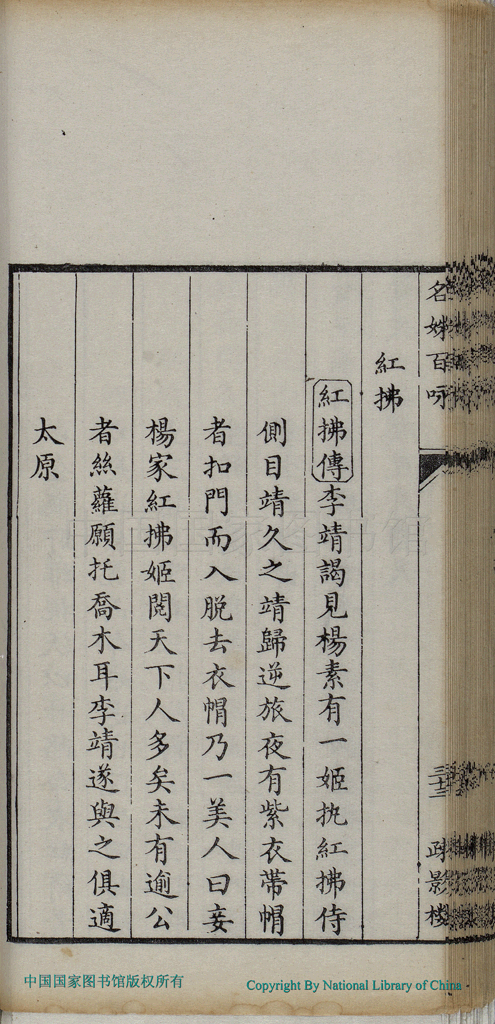 名姝百咏
三十三
疏影樓
紅拂
紅拂傳李靖謁見楊素有一姬执紅拂侍
側目靖久之靖歸逆旅夜有紫衣帶帽
者扣門而入脫去衣帽乃一美人曰妾
楊家紅拂姬閱天下人多矣未有逾公
者絲蘿願托喬木耳李靖遂與之俱適
太原
中国国家图书馆版权所有
Copyright By National Library of China